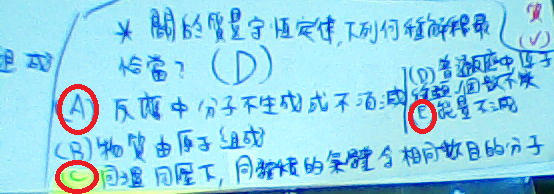 組成
質
(V)
* 關於質量守恆定律,下列何種解釋最
恰當? (D)
(A) 反應中分子不生成或不消滅
(B) 物質由原子組成
(C) 同溫同壓下,同體積的氣體含相同數目的分子
(D) 普通反應中原子
種類、個數不失
(E) 能量不滅